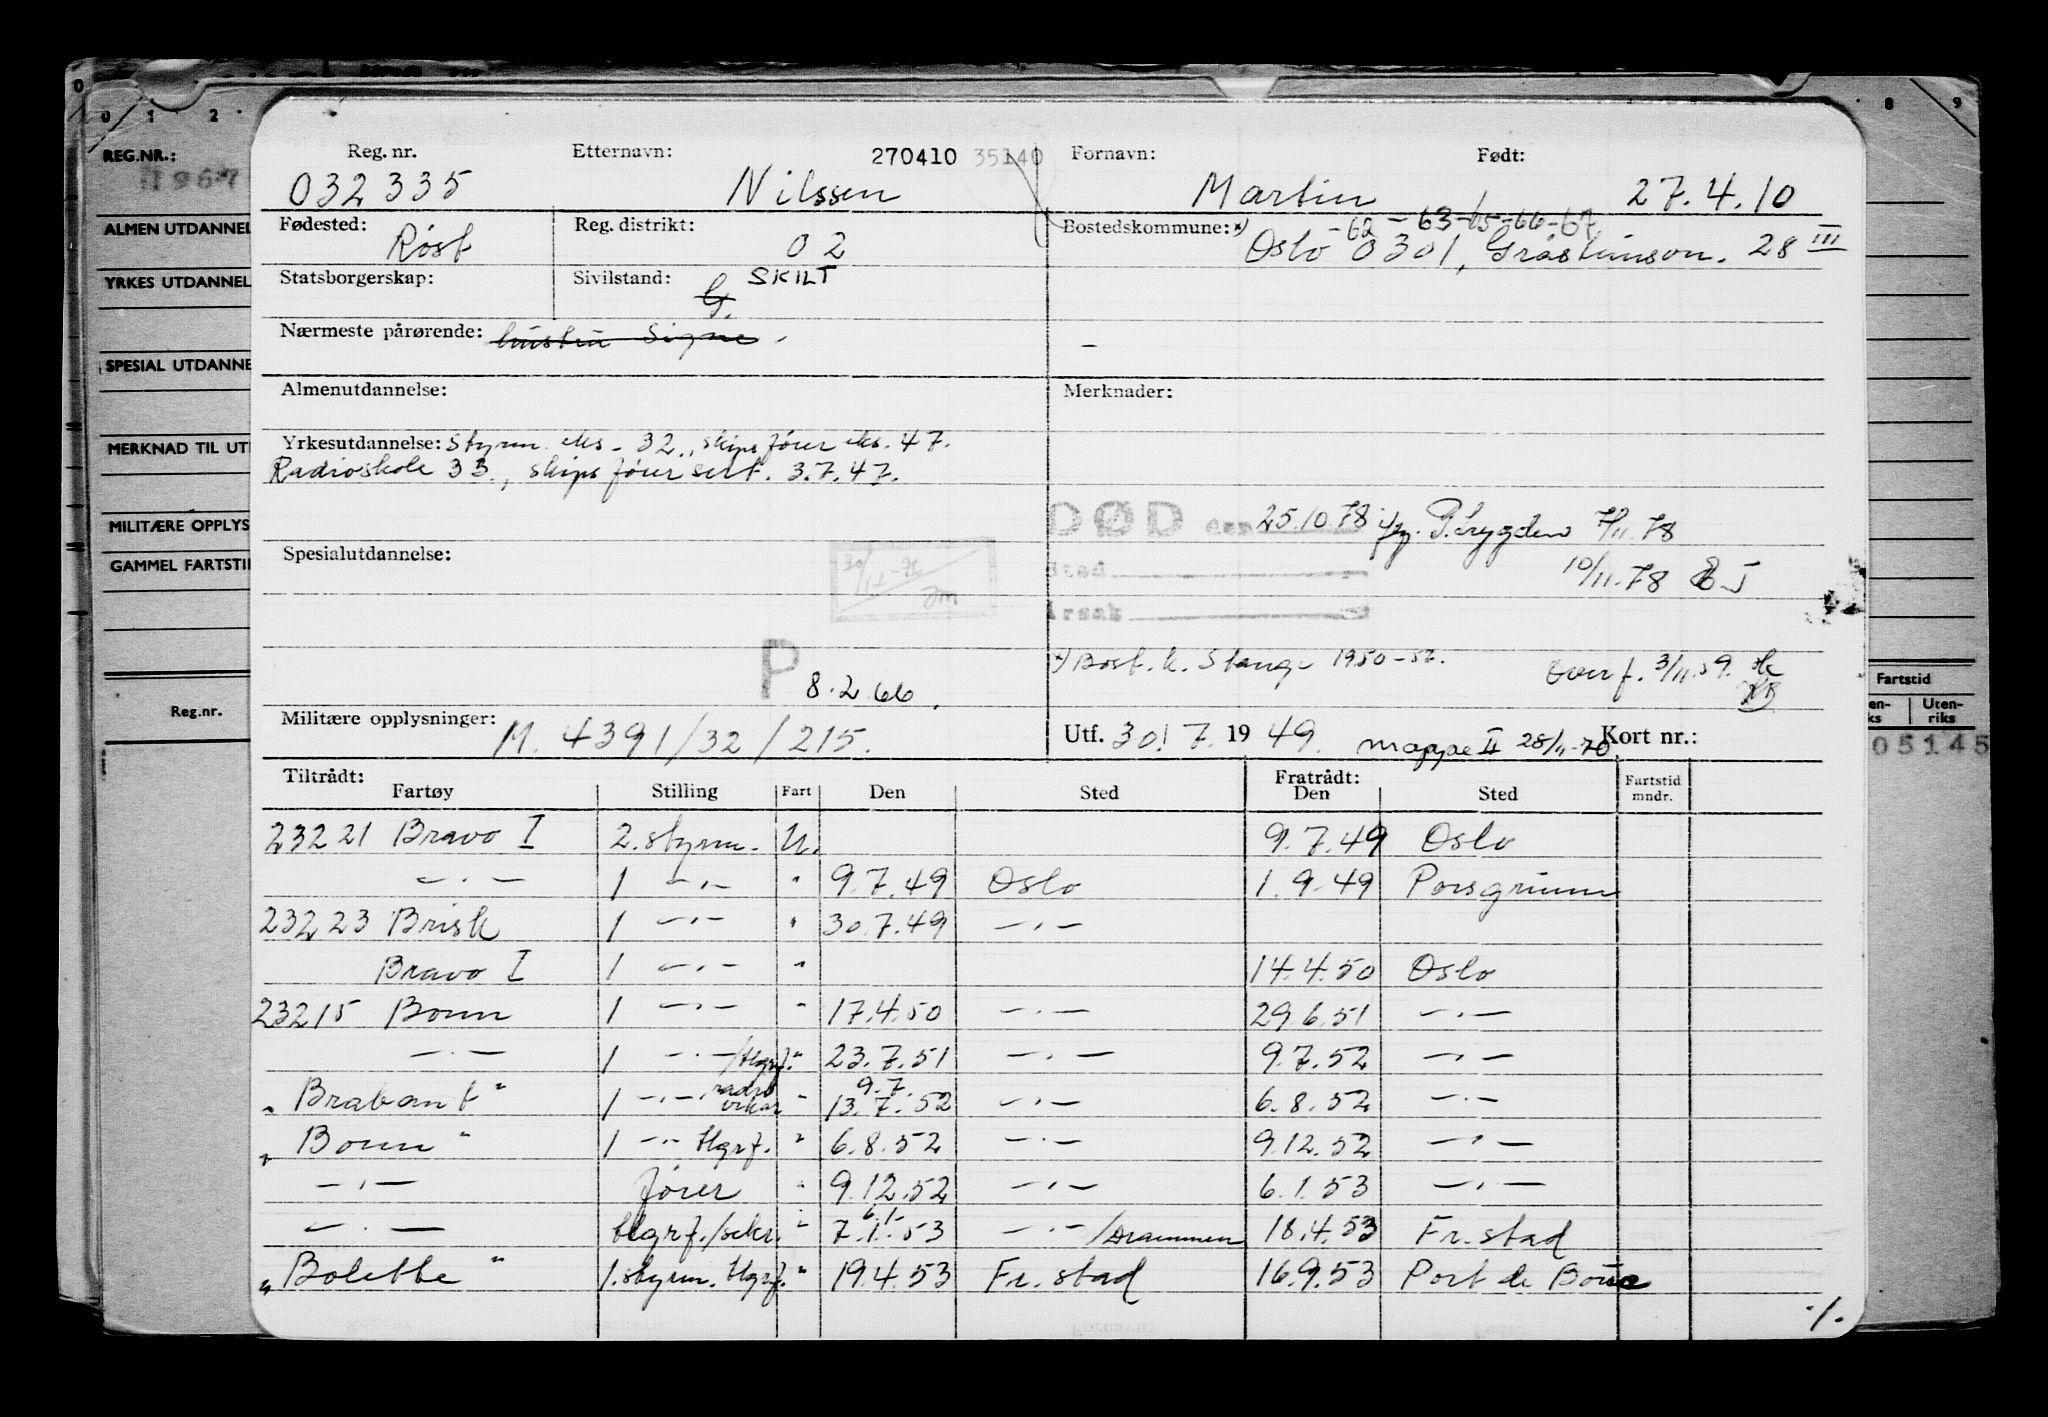 0 1 2 8 9
REG.NR.:
ALMEN UTDANNEL
YRKES UTDANNEL
SPESIAL UTDANNE
MERKNAD TIL UT
MILITÆRE OPPLYS
GAMMEL FARTSTI
Reg.nr.
Fartstid
Uten-
riks
05145
Reg. nr. Etternavn: 270410 35140 Fornavn: Født:
032335 Nilssen Martin 27.4.10
Fødested: Røst Reg. distrikt: 02 Bostedskommune: *) -62-63-65-66-67
Oslo 0301, 28 III
Statsborgerskap: Sivilstand: G. SKILT
Nærmeste pårørende: hustru Signe
Almenutdannelse: Merknader:
Yrkesutdannelse: Styrm. eks - 32, skipsfører eks. 47.
Radioskole 33., skipsfører sert. 3.7.47.
DØD den 25.10.78 7/11.78
Spesialutdannelse: Sted 10/11.78
Årsak
*) Bost. k. Stange 1950-52. Overf. 3/11.59.
P 8.2.66
Militære opplysninger: M. 4391/32/215. Utf. 30/7. 1949. mappe II 28/11-70 Kort nr.:
Tiltrådt: Fratrådt: Fartstid
Fartøy Stilling Fart Den Sted Den Sted mndr.
23221 Bravo I 2. styrm. U. 9.7.49 Oslo
—.— 1 —.— " 9.7.49 Oslo 1.9.49 Porsgrunn
23223 Brisk 1 —.— " 30.7.49 —.—
Bravo I 1 —.— " 14.4.50 Oslo
23215 Bonn 1 —.— " 17.4.50 —.— 29.6.51 —.—
—.— 1 —.—/tlgrf. " 23.7.51 —.— 9.7.52 —.—
" Brabant " 1 —.— radio vikar " 9.7. 13.7.52 —.— 6.8.52 —.—
" Bonn " 1 —.— tlgrf. " 6.8.52 —.— 9.12.52 —.—
—.— fører " 9.12.52 —.— 6.1.53 —.—
—.— tlgrf./sekr. " 6.1- 7.1.53 —.—/Drammen 18.4.53 Fr.stad
" Bolette " 1. styrm. tlgrf. " 19.4.53 Fr.stad 16.9.53 Port de Bouc
./.